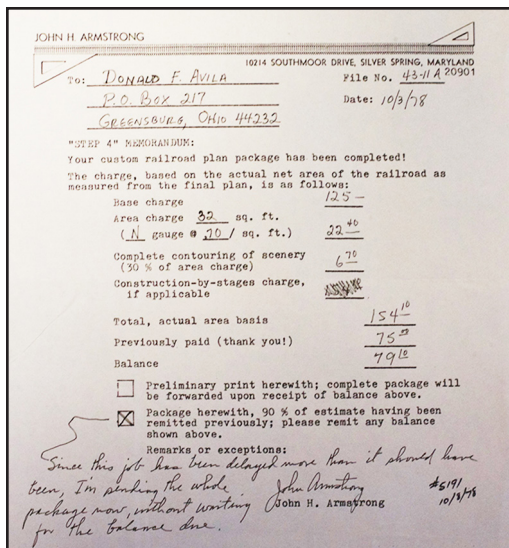 JOHN H. ARMSTRONG
10214 SOUTHMOOR DRIVE, SILVER SPRING, MARYLAND
20901
To: DONALD F. AVILA
File No. 43-11A
P.O. BOX 217
Date: 10/3/78
GREENSBURG, OHIO 44232
"STEP 4" MEMORANDUM:
Your custom railroad plan package has been completed!
The charge, based on the actual net area of the railroad as
measured from the final plan, is as follows:
Base charge 125—
Area charge 32 sq. ft.
(N gauge @ .70 / sq. ft.) 22 40
Complete contouring of scenery
(30 % of area charge) 6 70
Construction-by-stages charge,
if applicable
Total, actual area basis 154 10
Previously paid (thank you!) 75 00
Balance 79 10
Preliminary print herewith; complete package will
be forwarded upon receipt of balance above.
Package herewith, 90 % of estimate having been
remitted previously; please remit any balance
shown above.
Remarks or exceptions:
Since this job has been delayed more than it should have
been, I'm sending the whole
package now, without waiting
for the balance due.
John Armstrong
John H. Armstrong
#5191
10/8/78